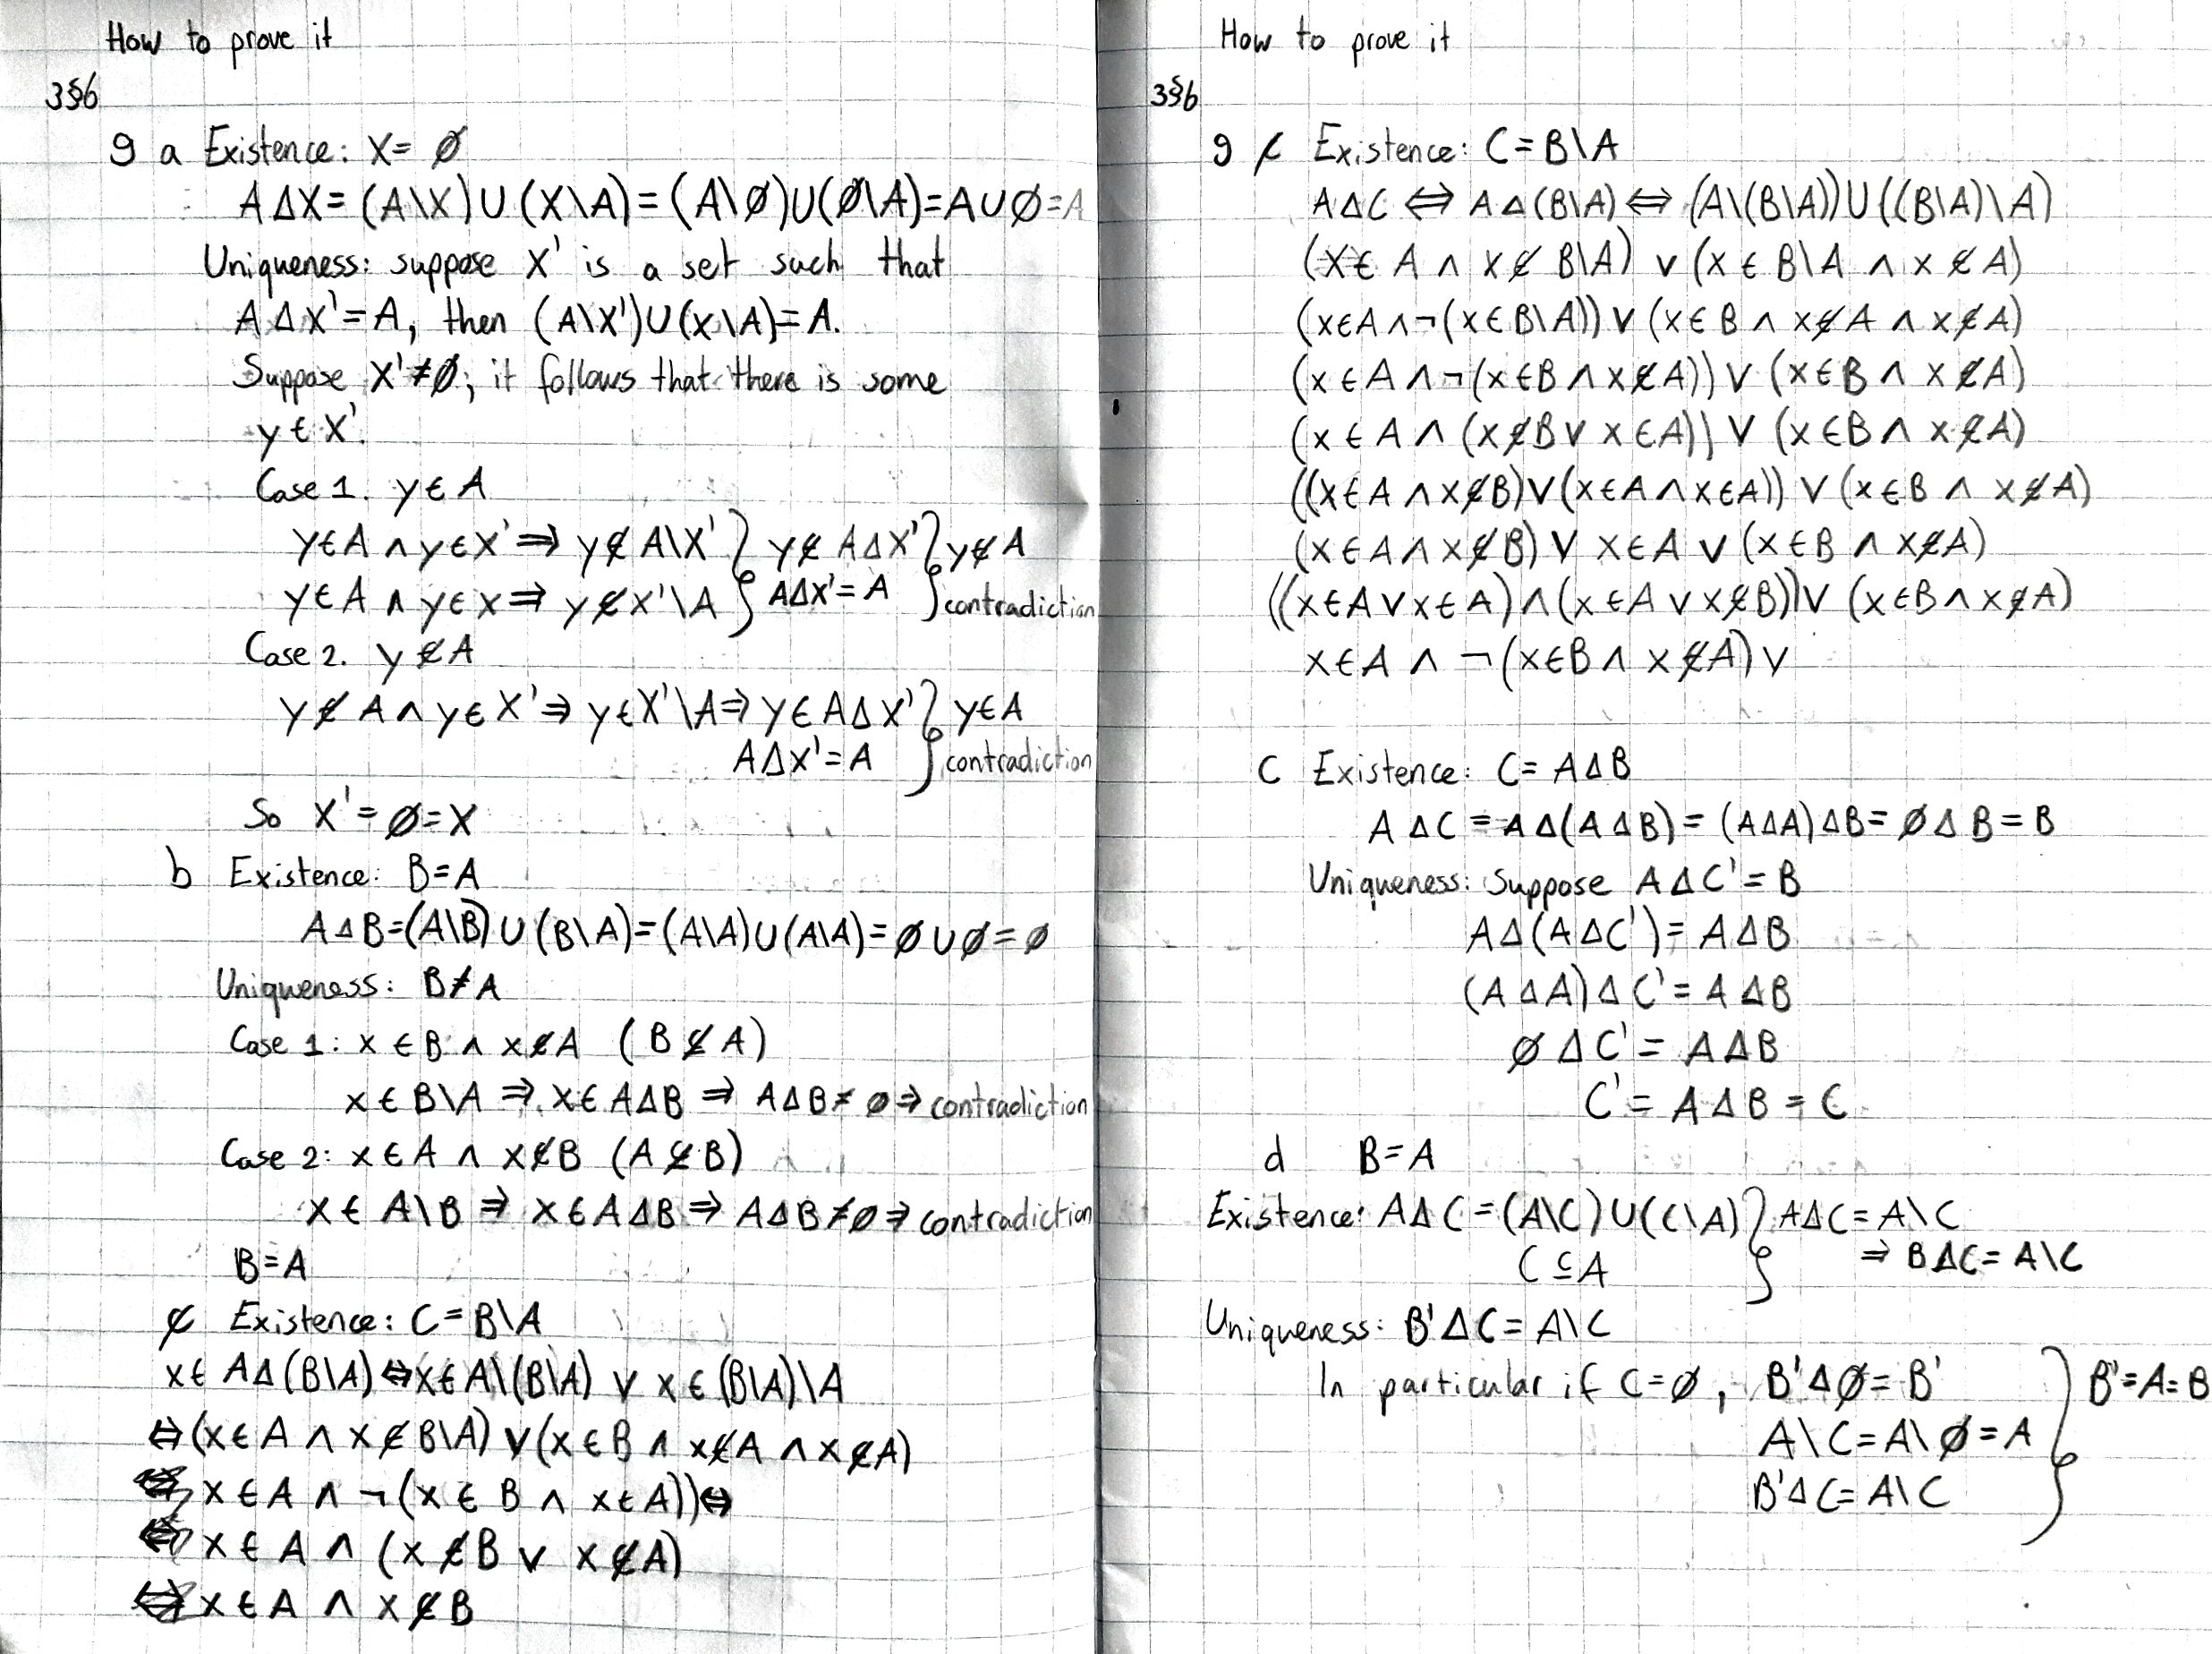 How to prove it
3§6
9 a Existence: X = ∅
A∆X = (A\X)∪(X\A) = (A\∅)∪(∅\A) = A∪∅ = A
Uniqueness: suppose X' is a set such that
A∆X' = A, then (A\X')∪(X\A) = A.
Suppose X' ≠ ∅; it follows that there is some
y ∈ X'.
Case 1. y ∈ A
y∈A ∧ y∈X' ⇒ y∉A\X' } y∉A∆X' } y∉A
y∈A ∧ y∈X ⇒ y∉X'\A } A∆X' = A } contradiction
Case 2. y ∉ A
y∉A ∧ y∈X' ⇒ y∈X'\A ⇒ y∈A∆X' } y∈A
A∆X' = A } contradiction
So X' = ∅ = X
b Existence: B = A
A∆B = (A\B)∪(B\A) = (A\A)∪(A\A) = ∅∪∅ = ∅
Uniqueness: B ≠ A
Case 1: x∈B ∧ x∉A (B ⊈ A)
x∈B\A ⇒ x∈A∆B ⇒ A∆B ≠ ∅ ⇒ contradiction
Case 2: x∈A ∧ x∉B (A ⊈ B)
x∈A\B ⇒ x∈A∆B ⇒ A∆B ≠ ∅ ⇒ contradiction
B = A
c Existence: C = B\A
x∈A∆(B\A) ⇔ x∈A\(B\A) ∨ x∈(B\A)\A
⇔ (x∈A ∧ x∉B\A) ∨ (x∈B ∧ x∉A ∧ x∉A)
x∈A ∧ ¬(x∈B ∧ x∈A)) ⇔
x∈A ∧ (x∉B ∨ x∉A)
⇔ x∈A ∧ x∉B
How to prove it
3§6
9 c Existence: C = B\A
A∆C ⇔ A∆(B\A) ⇔ (A\(B\A))∪((B\A)\A)
(x∈A ∧ x∉B\A) ∨ (x∈B\A ∧ x∉A)
(x∈A ∧ ¬(x∈B\A)) ∨ (x∈B ∧ x∉A ∧ x∉A)
(x∈A ∧ ¬(x∈B ∧ x∉A)) ∨ (x∈B ∧ x∉A)
(x∈A ∧ (x∉B ∨ x∈A)) ∨ (x∈B ∧ x∉A)
((x∈A ∧ x∉B) ∨ (x∈A ∧ x∈A)) ∨ (x∈B ∧ x∉A)
(x∈A ∧ x∉B) ∨ x∈A ∨ (x∈B ∧ x∉A)
((x∈A ∨ x∈A) ∧ (x∈A ∨ x∉B)) ∨ (x∈B ∧ x∉A)
x∈A ∧ ¬(x∈B ∧ x∉A) ∨
c Existence: C = A∆B
A∆C = A∆(A∆B) = (A∆A)∆B = ∅∆B = B
Uniqueness: Suppose A∆C' = B
A∆(A∆C') = A∆B
(A∆A)∆C' = A∆B
∅∆C' = A∆B
C' = A∆B = C
d B = A
Existence: A∆C = (A\C)∪(C\A) } A∆C = A\C
C ⊆ A } ⇒ B∆C = A\C
Uniqueness: B'∆C = A\C
In particular if C = ∅, B'∆∅ = B' } B' = A = B
A\C = A\∅ = A
B'∆C = A\C